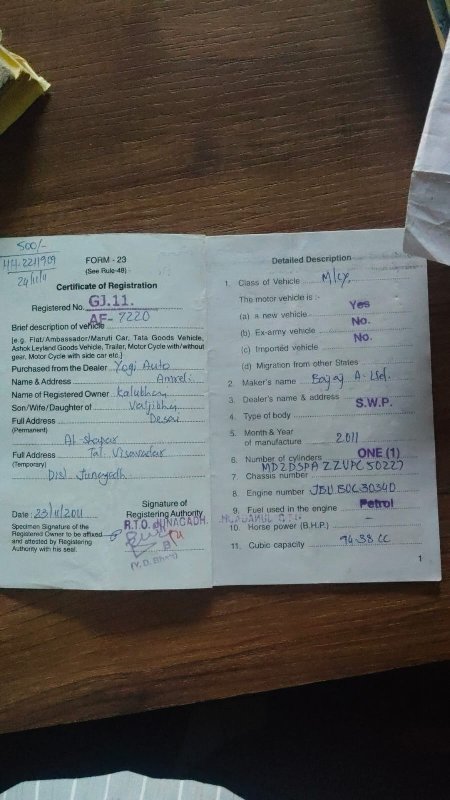 500/-
24/11/11
FORM - 23
(See Rule-48)
Certificate of Registration
Registered No. GJ.11.
AF-7220
Brief description of vehicle
[e.g. Fiat/Ambassador/Maruti Car, Tata Goods Vehicle,
Ashok Leyland Goods Vehicle, Trailer, Motor Cycle with/without
gear, Motor Cycle with side car etc.]
Purchased from the Dealer Yogi Auto
Name & Address Amreli
Name of Registered Owner Kalubhai
Son/Wife/Daughter of Valjibhai
Full Address Desai
(Permanent)
At-Shapar
Full Address Tal. Visavadar
(Temporary)
Dist Junagadh
Date : 23/11/2011
Signature of
Registering Authority
Specimen Signature of the
Registered Owner to be affixed
and attested by Registering
Authority with his seal.
R.T.O. JUNAGADH.
Detailed Description
1. Class of Vehicle M/cy.
The motor vehicle is :-
(a) a new vehicle Yes
(b) Ex-army vehicle No.
(c) Imported vehicle No.
(d) Migration from other States
2. Maker's name Bajaj A. Ltd.
3. Dealer's name & address
4. Type of body S.W.P.
5. Month & Year
of manufacture 2011
6. Number of cylinders ONE (1)
7. Chassis number MD2DSPAZZUPC50227
8. Engine number JBUBUC30340
9. Fuel used in the engine Petrol
10. Horse power (B.H.P.) -
11. Cubic capacity 94.38 CC
1